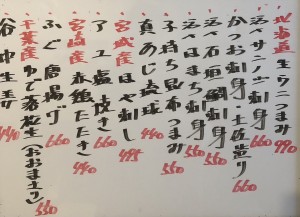 北海道 生ウニつまみ 990
活〆サンマ刺身 550
かつお刺身 土佐造り 660
活〆石垣鯛刺身 660
活〆つぶ刺身 550
子持ち昆布つまみ 550
真あじ琉球 440
宮城産 ほや刺し 495
アユ塩焼き 660
宮崎産 赤鶏たたき 440
ふぐ唐揚げ 660
千葉産 ゆで落花生(おおまさり) 550
谷中生姜 440